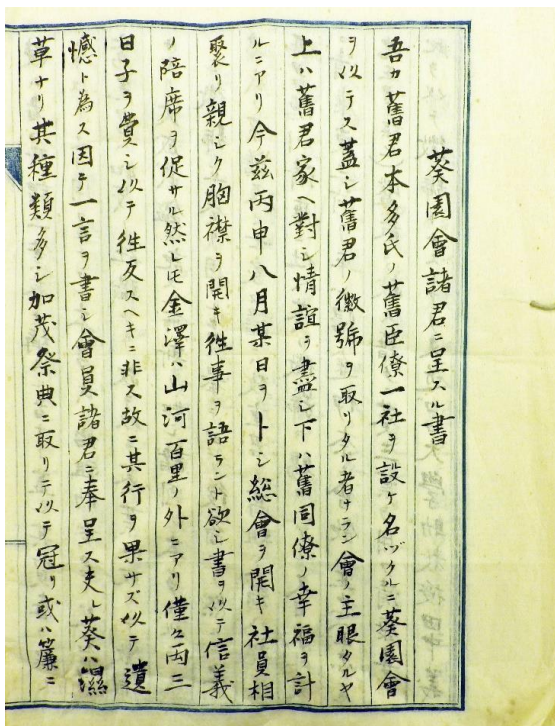 葵園會諸君ニ呈スル書
吾カ舊君本多氏ノ舊臣僚一社ヲ設ケ名ヅクルニ葵園會
ヲ以テス蓋シ舊君ノ徽號ヲ取リタル者ナラン會ノ主眼タルヤ
上ハ舊君家ヘ對シ情誼ヲ盡シ下ハ舊同僚ノ幸福ヲ計
ルニアリ今茲丙申八月某日ヲトシ総會ヲ開キ社員相
聚リ親シク胸襟ヲ開キ往事ヲ語ラント欲シ書ヲ以テ信義
ノ陪席ヲ促サル然レ𪜈金澤ハ山河百里ノ外ニアリ僅々両三
日子ヲ費シ以テ往反スヘキニ非ス故ニ其行ヲ果サズ以テ遺
憾ト為ス因テ一言ヲ書シ會員諸君ニ奉呈ス夫レ葵ハ湿
草ナリ其種類多シ加茂祭典ニ取リテ以テ冠リ或ハ簾ニ